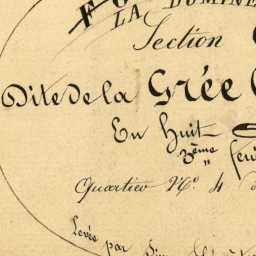 LA DOMINE
Section
Dite de la Grée
En Huit
3ème feui
Quartier No. 4 d
Levés par